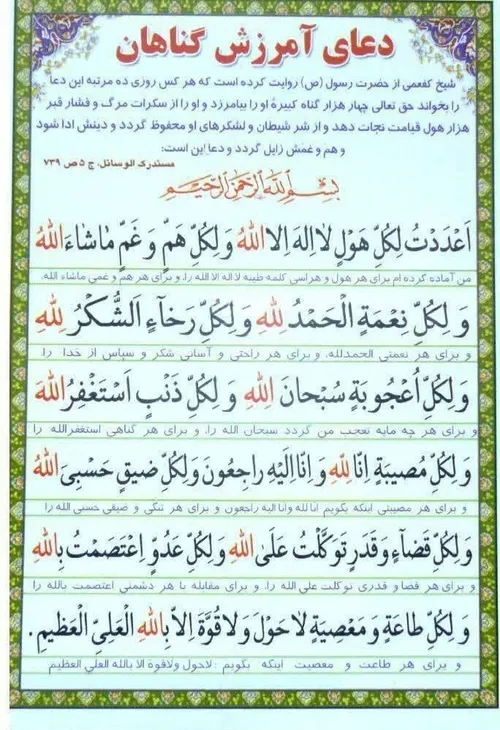 دعای آمرزش گناهان
شیخ کفعمی از حضرت رسول (ص) روایت کرده است که هر کس روزی ده مرتبه این دعا
را بخواند حق تعالی چهار هزار گناه کبیرهٔ او را بیامرزد و او را از سکرات مرگ و فشار قبر
هزار هول قیامت نجات دهد و از شر شیطان و لشکرهای او محفوظ گردد و دینش ادا شود
و هم و غمش زایل گردد و دعا این است:
مستدرک الوسائل، ج ۵ ص ۷۳۹
بِسْمِ اللهِ الرَّحْمنِ الرَّحیمِ
اَعْدَدْتُ لِکُلِّ هَوْلٍ لا اِلهَ اِلاَّ اللهُ وَ لِکُلِّ هَمٍّ وَ غَمٍّ ماشاءَ اللهُ
من آماده کرده ام برای هر هول و هراسی کلمه طیبه لا اله الا الله را، و برای هر هم و غمی ماشاء الله.
وَ لِکُلِّ نِعْمَةٍ الْحَمْدُ لِلّهِ وَ لِکُلِّ رَخآءٍ اَلشُّکْرُ لِلّهِ
و برای هر نعمتی الحمدلله، و برای هر راحتی و آسانی شکر و سپاس از خدا را.
وَ لِکُلِّ اُعْجُوبَةٍ سُبْحانَ اللهِ وَ لِکُلِّ ذَنْبٍ اَسْتَغْفِرُ اللهَ
و برای هر چه مایه تعجب من گردد سبحان الله را، و برای هر گناهی استغفرالله را
وَ لِکُلِّ مُصیبَةٍ اِنّا لِلّهِ وَ اِنّا اِلَیْهِ راجِعُونَ وَ لِکُلِّ ضیقٍ حَسْبِیَ اللهُ
و برای هر مصیبتی اینکه بگویم انا لله وانا الیه راجعون و برای هر تنگی و ضیقی حسبی الله را
وَ لِکُلِّ قَضآءٍ وَ قَدَرٍ تَوَکَّلْتُ عَلَی اللهِ وَ لِکُلِّ عَدُوٍّ اِعْتَصَمْتُ بِاللهِ
و برای هر قضا و قدری توکلت علی الله را، و برای مقابله با هر دشمنی اعتصمت بالله را
وَ لِکُلِّ طاعَةٍ وَ مَعْصِیَةٍ لا حَوْلَ وَ لا قُوَّةَ اِلاّ بِاللهِ الْعَلِیِّ الْعَظیمِ.
و برای هر طاعت و معصیت اینکه بگویم: لاحول ولاقوة الا بالله العلی العظیم